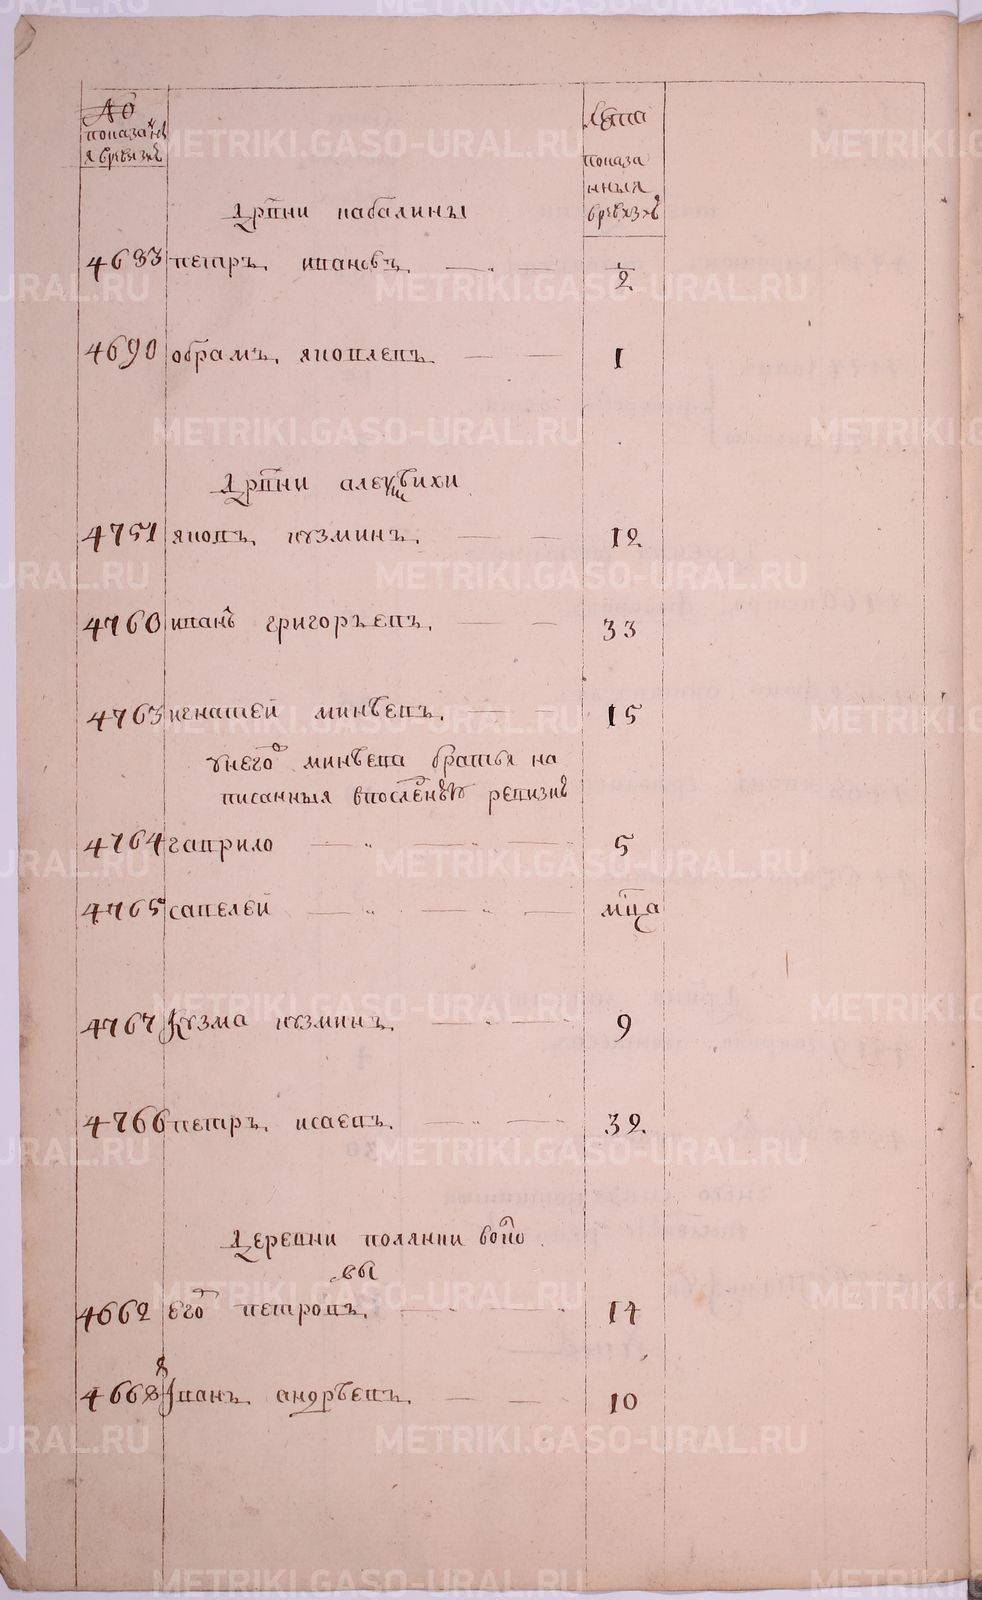 №
показанъ
я вревизиѣ
лѣта
показа
нныя
вревизиѣ
Дрвни кабалины
4683 петръ ивановъ ½
4690 обрамъ яковлевъ 1
Дрвни
4751 яковъ кузминъ 12
4760 иванъ григорьевъ 33
4763 игнатей минѣевъ 15
унего минѣева братья на
писанныя впослѣ ревизиѣ
4764 гаврило 5
4765 савелей мца
4767 Кузма кузминъ 9
4766 петръ исаевъ 32
Деревни полянки воно
вы
4662 его петровъ 14
4668 Іванъ андрѣевъ 10
METRIKI.GASO-URAL.RU